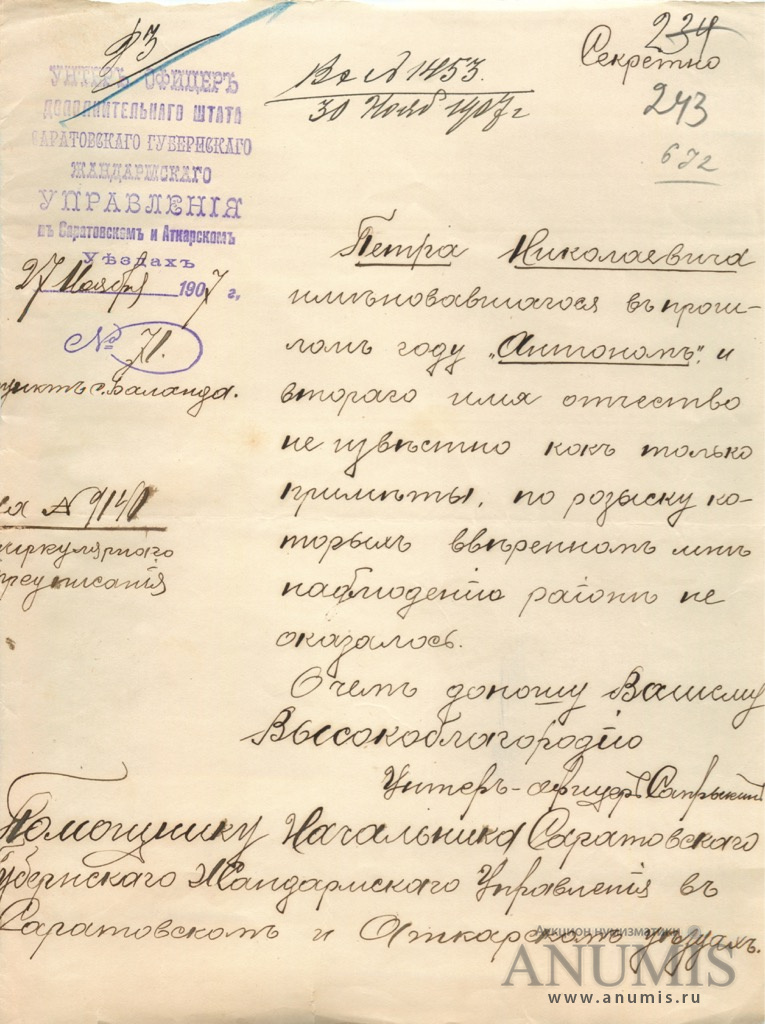 93
УНТЕРЪ ОФИЦЕРЪ
ДОПОЛНИТЕЛЬНАГО ШТАТА
САРАТОВСКАГО ГУБЕРНСКАГО
ЖАНДАРМСКАГО
УПРАВЛЕНІЯ
въ Саратовскомъ и Аткарскомъ
Уѣздахъ
27 Ноября 1907 г.
№ 71.
пунктъ с. Баланда.
№ 9140
циркулярнаго
предписанія
Вх № 1453.
30 Нояб 1907 г
Секретно
234
243
672
Петра Николаевича
именовавшагося въ прош-
ломъ году „Антономъ“ и
втораго имя отчество
не извѣстно какъ только
примѣты, по розыску ко-
торыхъ ввѣренномъ мнѣ
наблюденію раіонѣ не
оказалось.
О чемъ доношу Вашему
Высокоблагородію
Унтеръ-офицеръ Сапрыкинъ
Помощнику Начальника Саратовскаго
Губернскаго Жандармскаго Управленія въ
Саратовскомъ и Аткарскомъ уѣздахъ.
Аукцион нумизматики
ANUMIS
www.anumis.ru